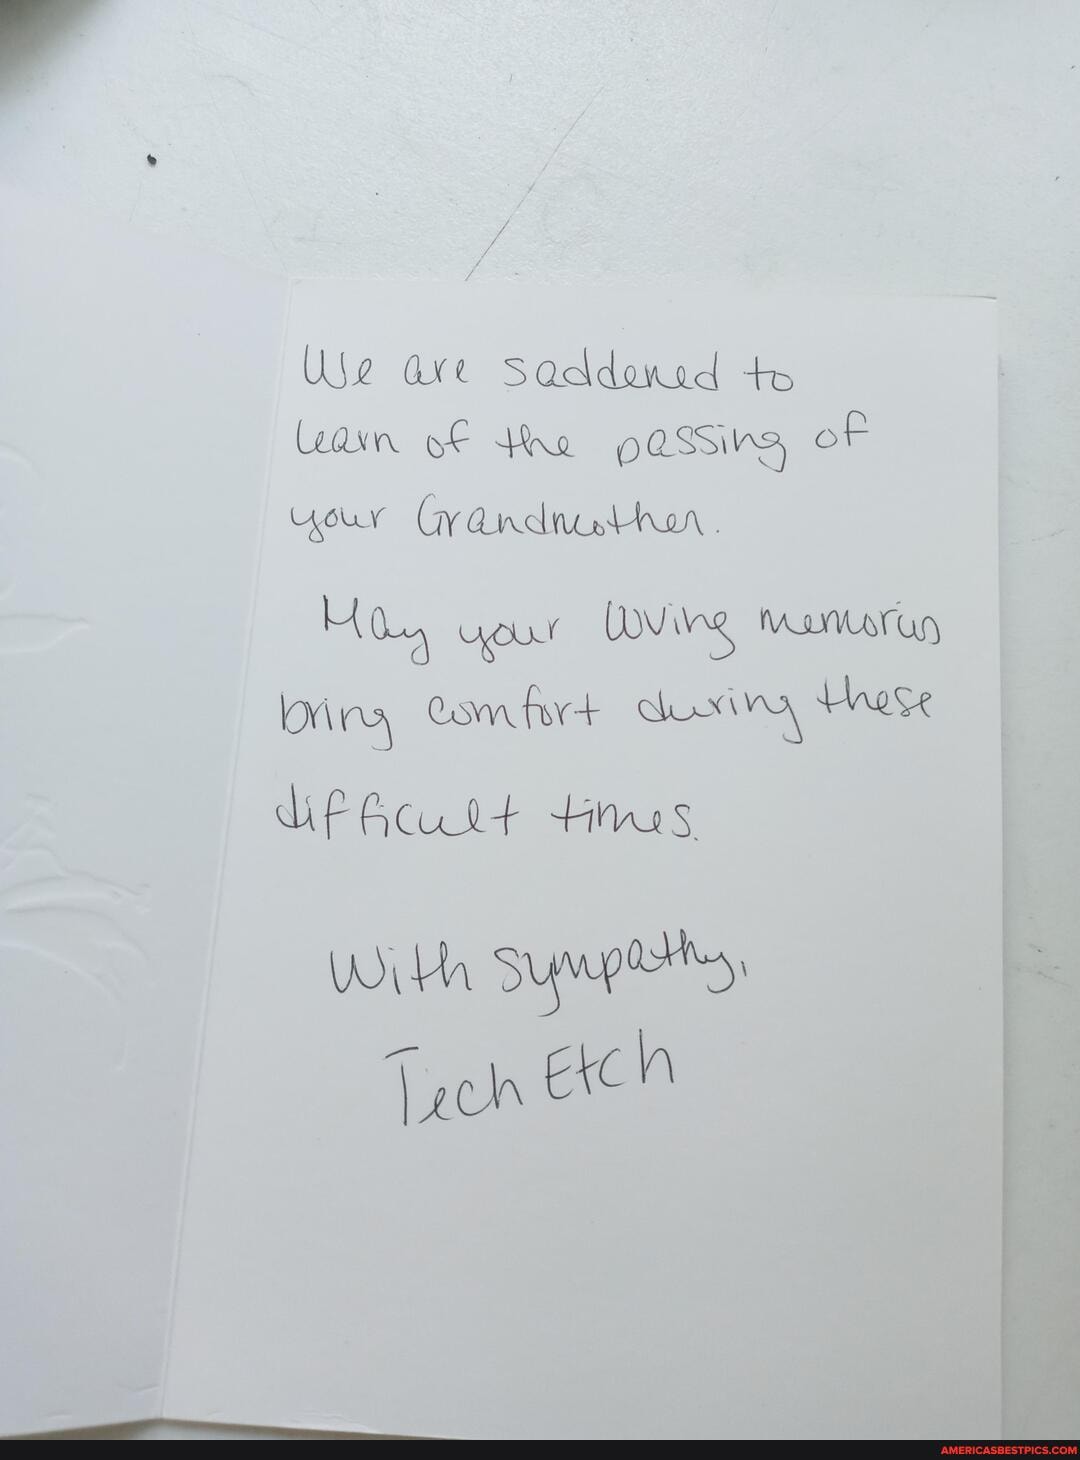 We are saddened to
learn of the passing of
your Grandmother.
May your loving memories
bring comfort during these
difficult times.
With sympathy,
Tech Etch
AMERICASBESTPICS.COM